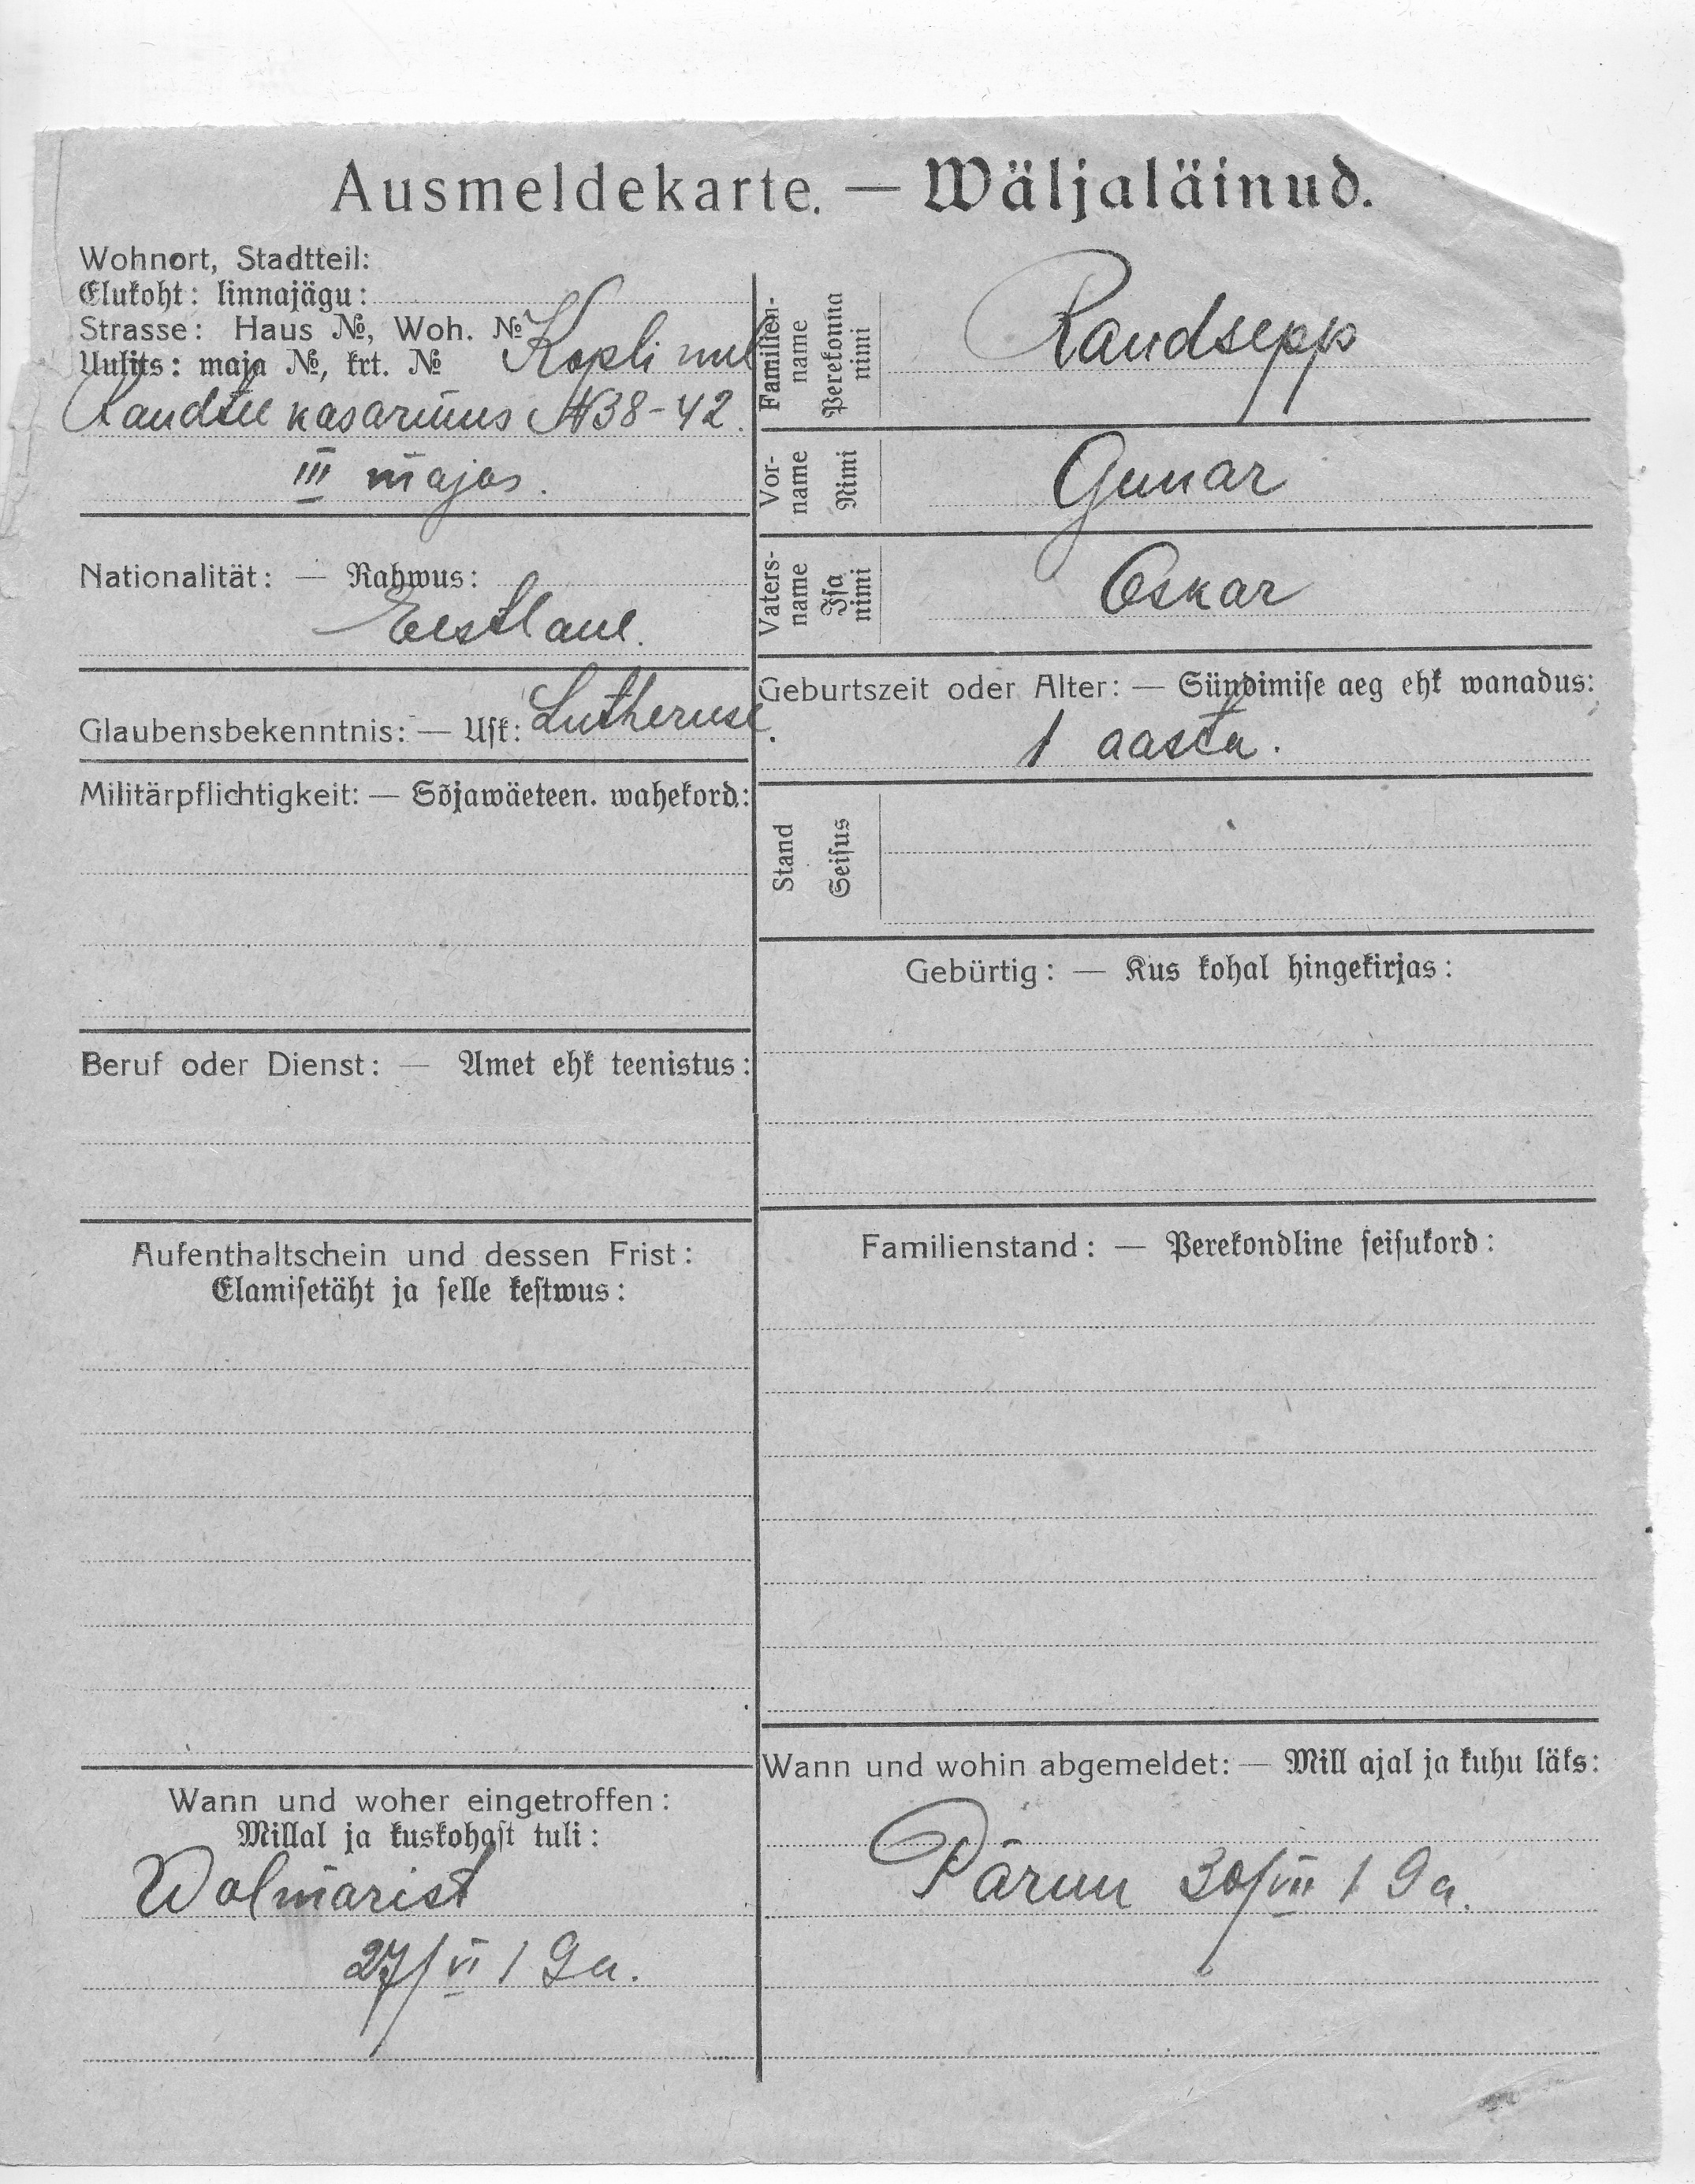 Ausmeldekarte. — Wäljaläinud.
Wohnort, Stadtteil:
Elukoht: linnajägu:
Strasse: Haus №, Woh. №
Uulits: maja №, krt. № Kopli
Raudtee kasarmus № 38-42.
III majas.
Nationalität: — Rahwus:
Eestlane.
Glaubensbekenntnis: — Usk: Lutheruse.
Militärpflichtigkeit: — Sõjawäeteen. wahekord:
Beruf oder Dienst: — Amet ehk teenistus:
Aufenthaltschein und dessen Frist:
Elamisetäht ja selle kestwus:
Wann und woher eingetroffen:
Millal ja kuskohast tuli:
Wolmarist
27/VI 19a.
Familien-
name
Perekonna
nimi
Raudsepp
Vor-
name
Nimi
Gunar
Vaters-
name
Isa
nimi
Oskar
Geburtszeit oder Alter: — Sündimise aeg ehk wanadus:
1 aasta.
Stand
Seisus
Gebürtig: — Kus kohal hingekirjas:
Familienstand: — Perekondline seisukord:
Wann und wohin abgemeldet: — Mill ajal ja kuhu läks:
Pärnu 30/VII 19a.